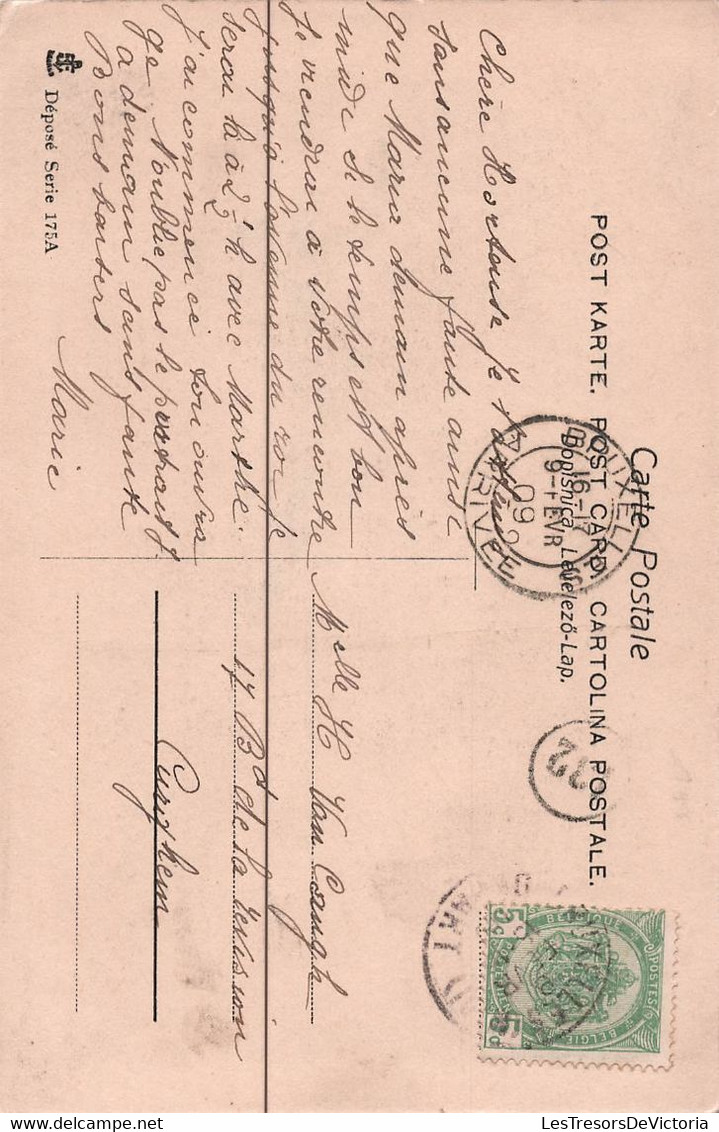 Carte Postale
POST KARTE. POST CARD. CARTOLINA POSTALE.
Dopisnica. Levelező-Lap.
BRUXELLES
16-17
9 FEVR
09
ARRIVEE
122
BELGIQUE
POSTES
5c
5c
BELGIË
Chère Hortense Je
sans aucune faute
que Maria demain après
midi Si le temps est bon
Je viendrai à votre rencontre
jusqu'à l'avenue du roi Je
serai là à 2½ h avec Marthe.
J'ai commencé ton ouvra
ge N'oublie pas le portrait J.
a demain sans faute
Bons baisers
Marie
Melle H Van Cangh
17 Bd de la révision
Cureghem
Déposé Serie 175A
LesTresorsDeVictoria